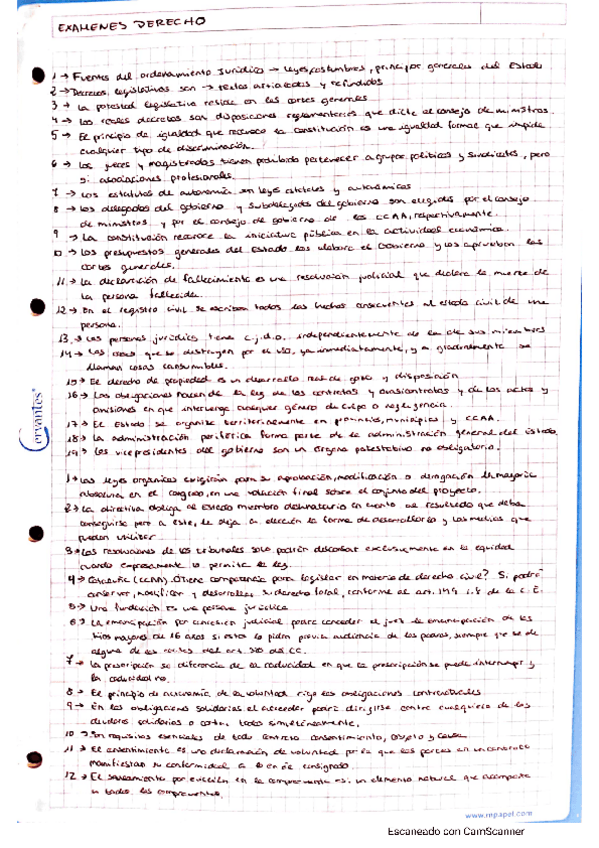 EXAMENES DERECHO
1 → Fuentes del ordenamiento Jurídico → leyes, costumbres, principios generales del Estado
2 → Decretos legislativos son → textos articulados y refundidos
3 → La potestad legislativa reside en las cortes generales
4 → Los reales decretos son disposiciones reglamentarias que dicte el consejo de ministros.
5 → El principio de igualdad que reconoce la constitución es una igualdad formal que impide
cualquier tipo de discriminación.
6 → Los jueces y magistrados tienen prohibido pertenecer a grupos políticos y sindicatos, pero
si asociaciones profesionales.
7 → Los estatutos de autonomía son leyes estatales y autonómicas
8 → Los delegados del gobierno y subdelegados del gobierno son elegidos por el consejo
de ministros y por el consejo de gobierno de las CCAA, respectivamente.
9 → La constitución reconoce la iniciativa pública en la actividad económica.
10 → Los presupuestos generales del Estado los elabora el Gobierno y los aprueban las
cortes generales.
11 → La declaración de fallecimiento es una resolución judicial que declara la muerte de
la persona fallecida.
12 → En el registro civil se escriben todos los hechos al estado civil de una
persona.
13 → Las personas jurídicas tiene c.j.d.o. independientemente de la de sus miembros
14 → Las cosas que se destruyen por el uso, ya inmediatamente, y a gradualmente se
llaman cosas consumibles.
15 → El derecho de propiedad es un real de goce y disposición
16 → Las obligaciones nacen de la ley, de los contratos y cuasicontratos y de los actos y
omisiones en que intervenga cualquier género de culpa o negligencia.
17 → El Estado se organiza territorialmente en provincias, municipios y CCAA.
18 → La administración periférica forma parte de la administración general del estado.
19 → Los vicepresidentes del gobierno son un órgano potestativo no obligatorio.
1 → Las leyes orgánicas exigirán para su aprobación, modificación o derogación la mayoría
absoluta en el congreso, en una votación final sobre el conjunto del proyecto.
2 → La directiva obliga al estado miembro destinatario en cuanto al resultado que deba
conseguirse pero a este, le deja la elección la forma de desarrollarlo y los medios que
pueden utilizar
3 → Las resoluciones de los tribunales solo podrán descansar exclusivamente en la equidad
cuando expresamente lo permita la ley.
4 → (CCAA) ¿Tiene competencia para legislar en materia de derecho civil? Sí, podrá
conservar, modificar y desarrollar su derecho foral, conforme al art. 149 1.8 de la C.E.
5 → Una fundación es una persona jurídica
6 → La emancipación por concesión judicial podrá conceder el juez la emancipación de los
hijos mayores de 16 años si estos lo piden previa audiencia de los padres, siempre que se de
alguna de las del art. 320 del CC.
7 → La prescripción se diferencia de la caducidad en que la prescripción se puede interrumpir y
la caducidad no.
8 → El principio de autonomía de la voluntad rige las obligaciones contractuales
9 → En las obligaciones solidarias el acreedor podrá dirigirse contra cualquiera de los
deudores solidarios o contra todos simultáneamente.
10 → Son requisitos esenciales de todo contrato consentimiento, objeto y causa
11 → El consentimiento es una declaración de voluntad por la que las partes en un contrato
manifiestan su conformidad a lo en él consignado.
12 → El saneamiento por evicción en la compraventa es: un elemento natural que acompaña
a todas las compraventas.
Cervantes
www.mpapel.com
Escaneado con CamScanner